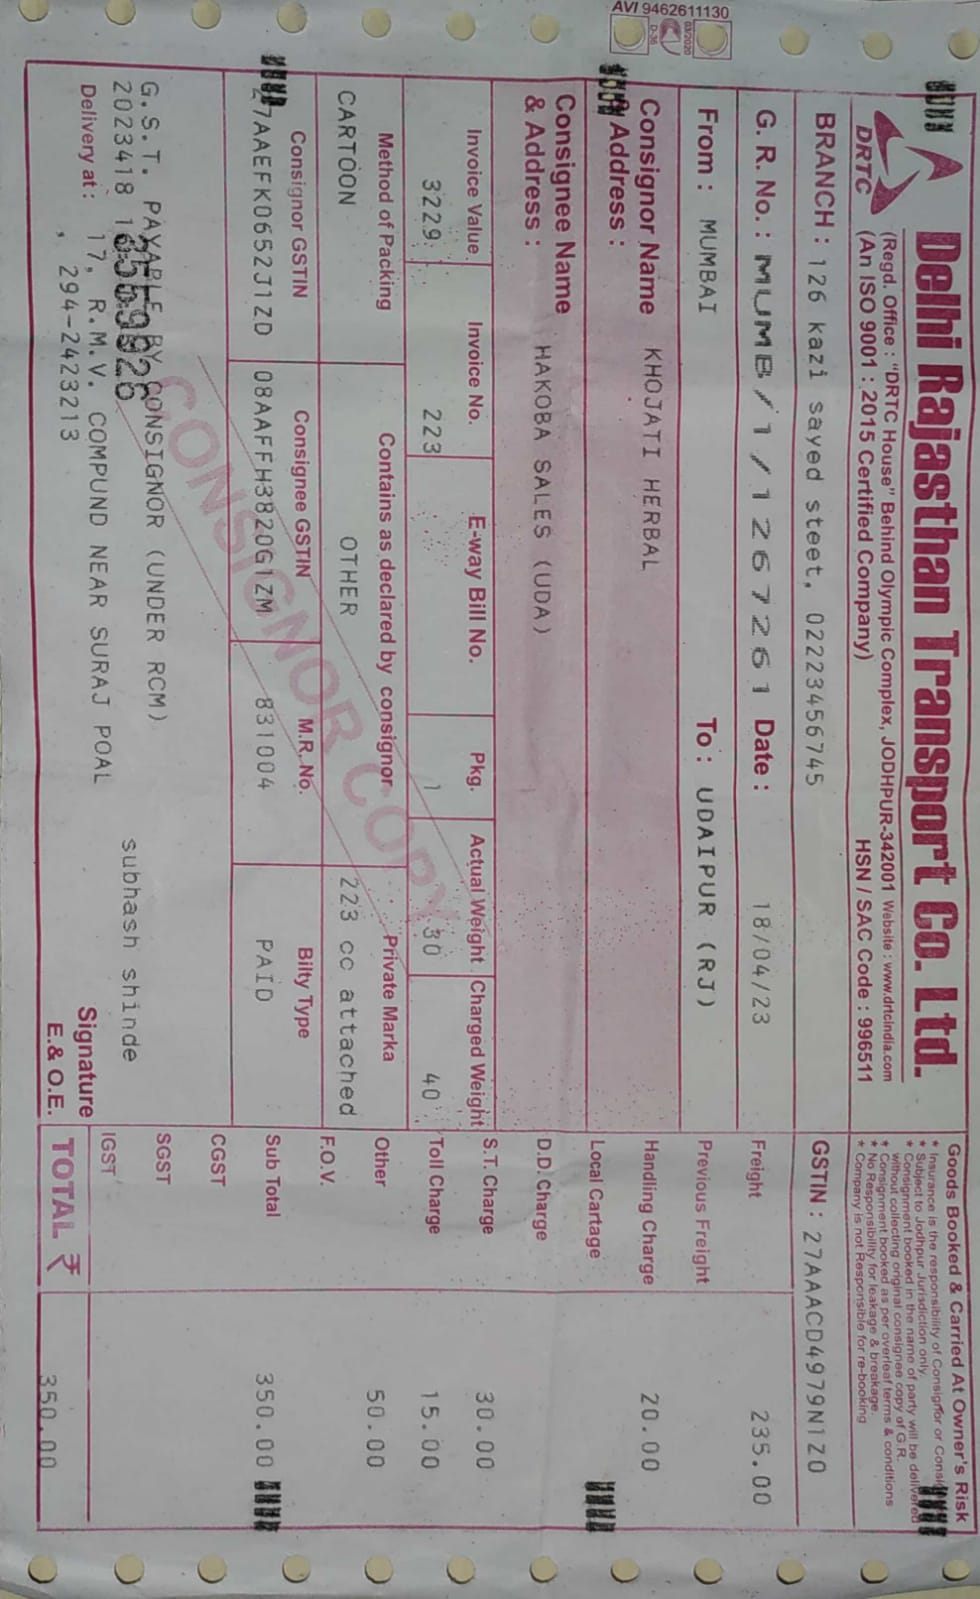 AVI 9462611130
03/2020
D-36
Delhi Rajasthan Transport Co. Ltd.
DRTC
(Regd. Office : "DRTC House" Behind Olympic Complex, JODHPUR-342001 Website : www.drtcindia.com
(An ISO 9001 : 2015 Certified Company)
HSN / SAC Code : 996511
Goods Booked & Carried At Owner's Risk
* Insurance is the responsibility of Consignor or
* Subject to Jodhpur Jurisdiction only.
* Consignment booked in the name of party will be delivered
without collecting original consignee copy of G.R.
* Consignment booked as per overleaf terms & conditions
* No Responsibility for leakage & breakage.
* Company is not Responsible for re-booking
BRANCH : 126 kazi sayed steet, 02223456745
GSTIN : 27AAACD4979N1Z0
G. R. No. : MUMB/1/1267261 Date : 18/04/23
Freight 235.00
From : MUMBAI To : UDAIPUR (RJ)
Previous Freight
Consignor Name KHOJATI HERBAL
Address :
Handling Charge 20.00
Local Cartage
Consignee Name HAKOBA SALES (UDA)
& Address :
D.D. Charge
Invoice Value Invoice No. E-way Bill No. Pkg. Actual Weight Charged Weight
S.T. Charge 30.00
3229 223 1 30 40
Toll Charge 15.00
Method of Packing Contains as declared by consignor Private Marka
Other 50.00
CARTOON OTHER 223 cc attached
F.O.V.
Consignor GSTIN Consignee GSTIN M.R. No. Bilty Type
Sub Total 350.00
27AAEFK0652J1ZD 08AAFFH3820G1ZM 831004 PAID
CONSIGNOR COPY
CGST
SGST
IGST
G.S.T. PAYABLE BY CONSIGNOR (UNDER RCM)
2023418
subhash shinde
Delivery at : 17, R.M.V. COMPUND NEAR SURAJ POAL
, 294-2423213
Signature
E.& O.E.
TOTAL ₹ 350.00